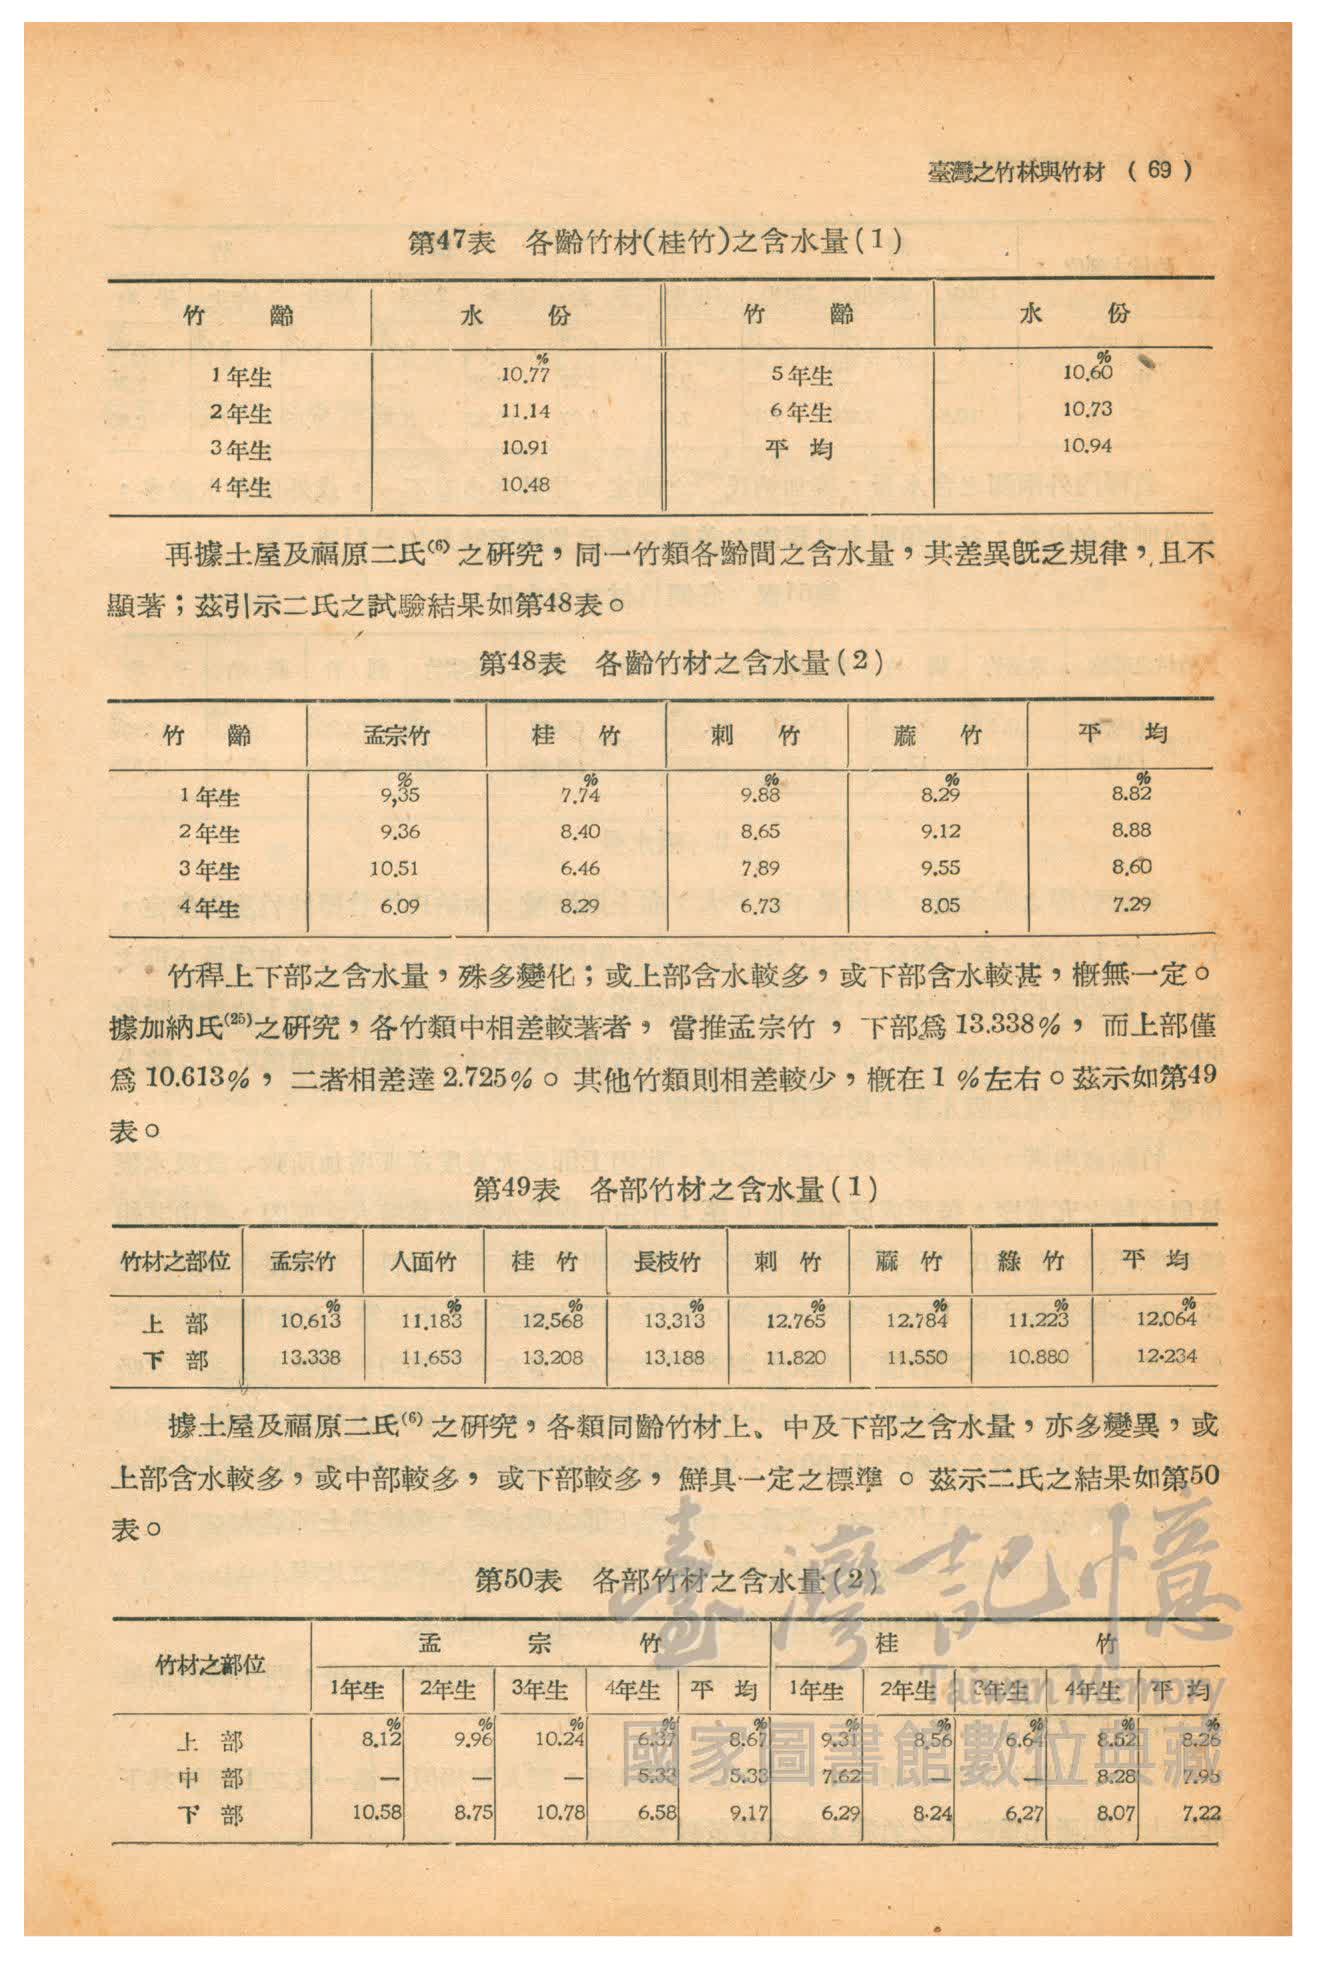 臺灣之竹林與竹材 ( 69 )
第47表 各齡竹材(桂竹)之含水量(1)
竹 齡 水 份 竹 齡 水 份
1年生 10.77% 5年生 10.60%
2年生 11.14 6年生 10.73
3年生 10.91 平 均 10.94
4年生 10.48
再據土屋及福原二氏(6)之研究，同一竹類各齡間之含水量，其差異旣乏規律，且不
顯著；茲引示二氏之試驗結果如第48表。
第48表 各齡竹材之含水量(2)
竹 齡 孟宗竹 桂 竹 刺 竹 蔴 竹 平 均
1年生 9,35% 7.74% 9.88% 8.29% 8.82%
2年生 9.36 8.40 8.65 9.12 8.88
3年生 10.51 6.46 7.89 9.55 8.60
4年生 6.09 8.29 6.73 8.05 7.29
竹稈上下部之含水量，殊多變化；或上部含水較多，或下部含水較甚，槪無一定。
據加納氏(25)之研究，各竹類中相差較著者，當推孟宗竹，下部爲13.338%，而上部僅
爲10.613%，二者相差達2.725%。其他竹類則相差較少，槪在1%左右。茲示如第49
表。
第49表 各部竹材之含水量(1)
竹材之部位 孟宗竹 人面竹 桂 竹 長枝竹 刺 竹 蔴 竹 綠 竹 平 均
上 部 10.613% 11.183% 12.568% 13.313% 12.765% 12.784% 11.223% 12.064%
下 部 13.338 11.653 13.208 13.188 11.820 11.550 10.880 12·234
據土屋及福原二氏(6)之研究，各類同齡竹材上、中及下部之含水量，亦多變異，或
上部含水較多，或中部較多，或下部較多，鮮具一定之標準。茲示二氏之結果如第50
表。
第50表 各部竹材之含水量(2)
竹材之部位 孟 宗 竹 桂 竹
1年生 2年生 3年生 4年生 平 均 1年生 2年生 3年生 4年生 平 均
上 部 8.12% 9.96% 10.24% 6.37% 8.67% 9.31% 8.56% 6.64% 8.52% 8.26%
中 部 — — — 5.33 5.33 7.62 — — 8.28 7.95
下 部 10.58 8.75 10.78 6.58 9.17 6.29 8·24 6,27 8.07 7.22
臺灣記憶
Taiwan Memory
國家圖書館數位典藏